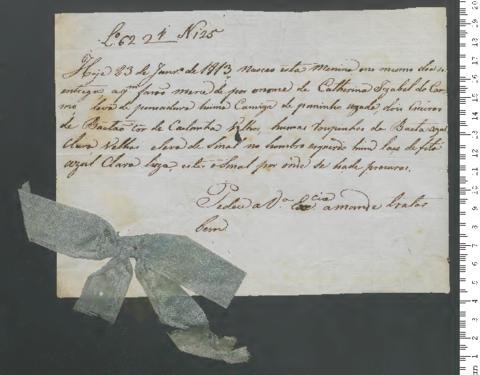 Lº 62 2ª N 125
Hoje 23 de Janrº de 1813 nasceo esta Menina e no mesmo dia se
entrega a qm faço merce de por o nome de Catherina Izabel do Car
mo leva de pencadura huma Camiza de paninho uzada, dois Coeiros
de Baetão Cor de Castanha Velhos, humas roupinhas de Baeta azul
Clara Velha e leva de Sinal no hombro esquerdo hum laço de fita
azul Clara larga, este o Sinal por onde se hade procurar.
Pede a Vª a mande tratar
bem